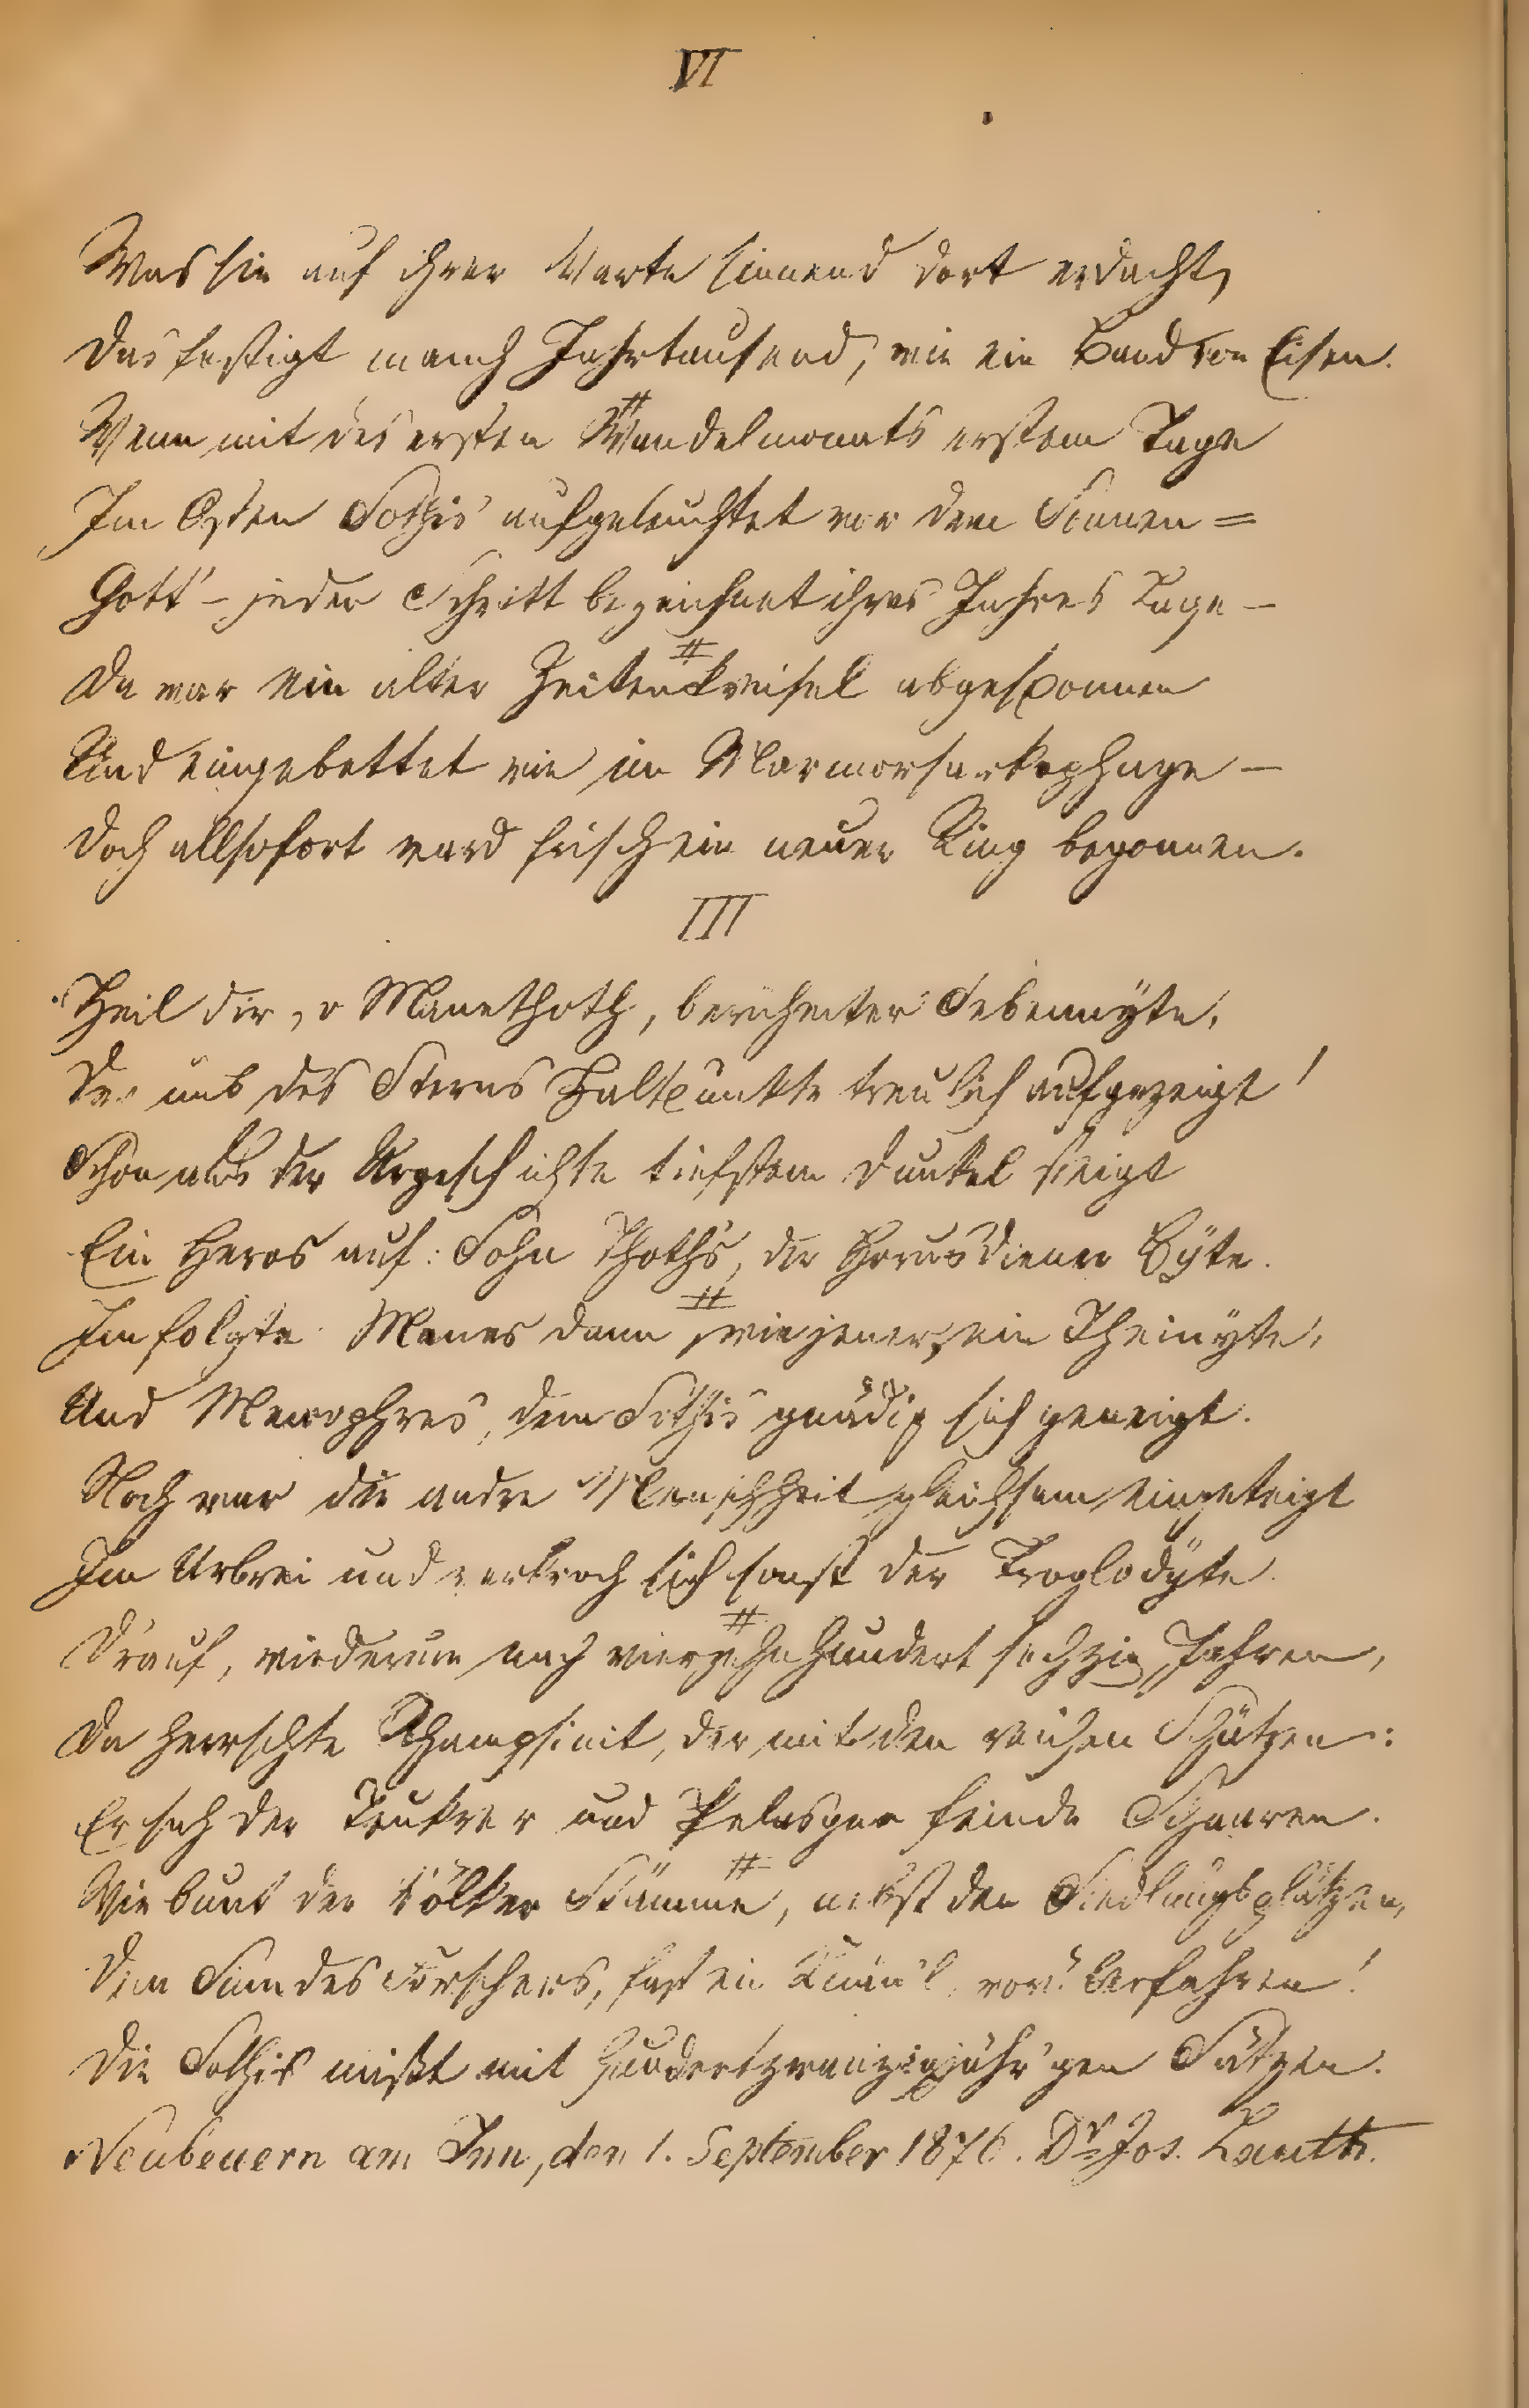 VI
Was sie auf ihrer Warte sinnend dort erdacht,
Das festigt manch Jahrtausend, wie ein Band von Eisen.
Wenn mit des ersten Wandelmonats erstem Tage
Im Osten Sothis aufgeleuchtet vor dem Sonnen=
Gott' – jeder Schritt bezeichnet ihres Jahres Lage –
Da war ein alter Zeitenkreisel abgesponnen
Und eingebettet wie im Marmorsarkophage –
Doch allsofort ward frisch ein neuer Ring begonnen.
III
Heil dir, o Manethoth, berühmter Sebennyte,
Der uns des Sterns Haltpunkte treulich aufgezeigt!
Schon aus der Urgeschichte tiefstem Dunkel steigt
Ein Heros auf: Sohn Thoth's, der Horusdiener Byte.
Im folgte Menes dann, wie jener, ein Theinyte,
Und Menophres, dem Sothis gnädig sich geneigt.
Noch war die andre Menschheit gleichsam eingeteigt
Im Urbrei und verkroch sich sonst der Troglodyte.
Drauf, wiederum nach vierzehnhundert sechzig Jahren,
Da herrschte Rhampsinit, der mit den reichen Schätzen:
Er sah der Teukrer und Pelasger feinde Schaaren.
Wie bunt der Völker Stämme, nebst den Siedlungsplätzen,
Dem Sinn des Forschers, fast ein Knäu'l, vorüberfahren!
Die Sothis mißt mit hundertzwanzigjähr'gen Sätzen.
Neubeuern am Inn, den 1. September 1876. Dr Jos. Lauth.